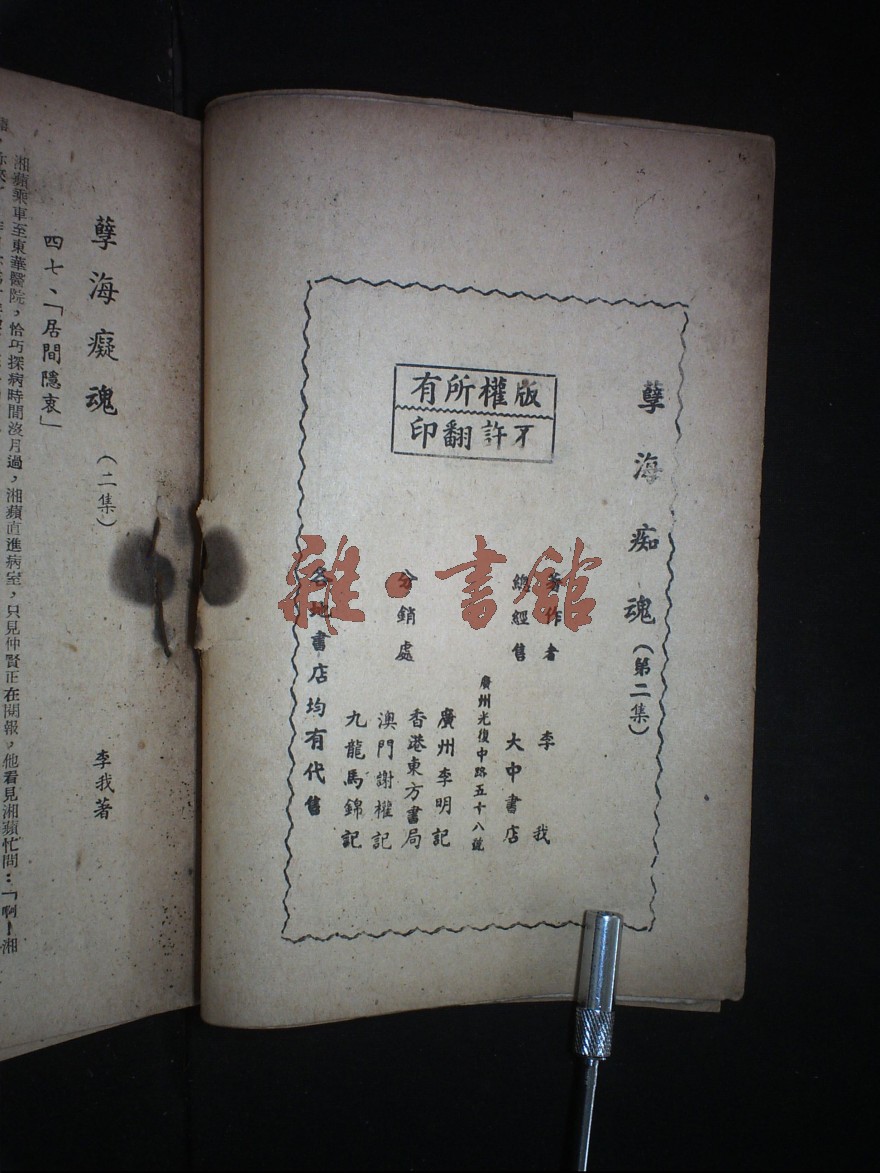 孽海痴魂（第二集）
版權所有
不許翻印
著作者 李我
總經售 大中書店
廣州光復中路五十八號
分銷處
廣州李明記
香港東方書局
澳門謝權記
九龍馬錦記
各地書店均有代售
雜·書館
孽海癡魂（二集）
李我著
四七、「居間隱衷」
湘蘋乘車至東華醫院，恰巧探病時間沒月過，湘蘋直進病室，只見仲賢正在閱報，他看見湘蘋忙問：「啊！湘